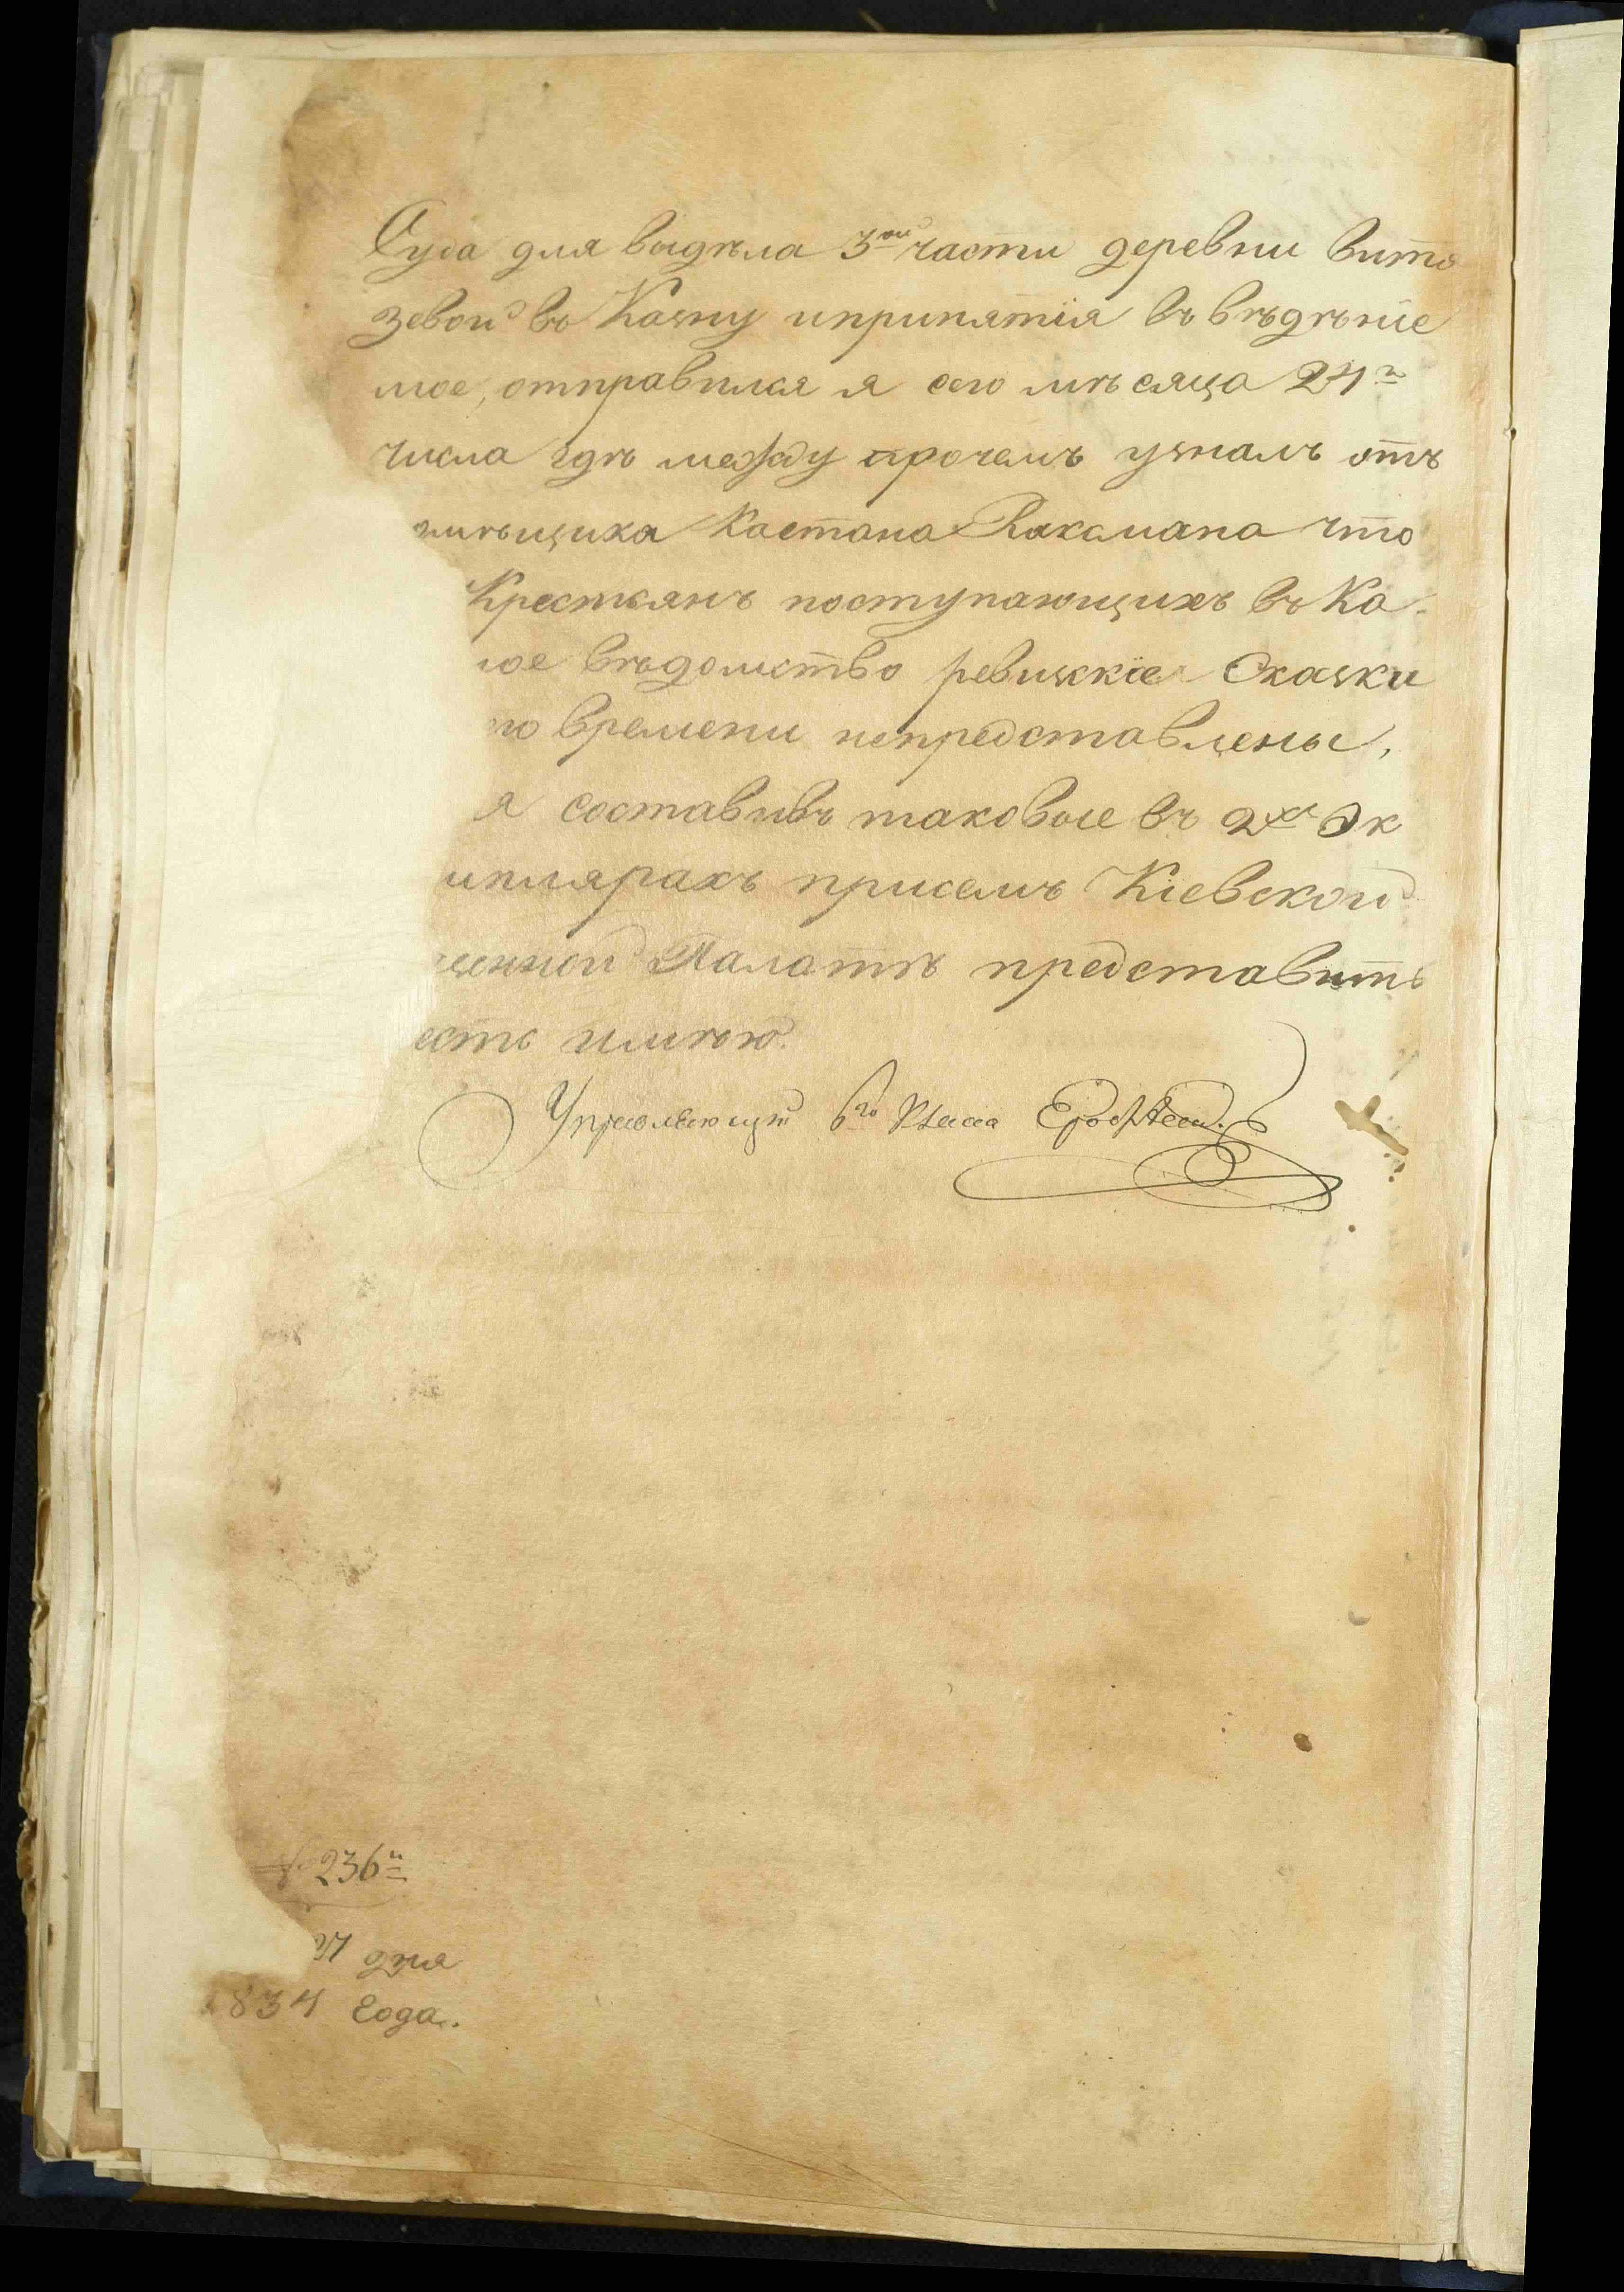 Суда для выдѣла 3ей части деревни Вито
зевой въ Казну ипринятія въ вѣдѣніе
мое, отправился я сего мѣсяца 24го
числа гдѣ между прочемъ узналъ отъ
что
Крестьянъ поступающихъ въ Ка-
ное вѣдомство ревизскіе Сказки
го времени непредставлены,
я составивъ таковые въ 2хъ Эк
имплярахъ присемъ Кіевской
зенной Палатѣ представить
есть имѣю.
Управляющій 6го Класа
№ 236й
27 дня
1834 Года.